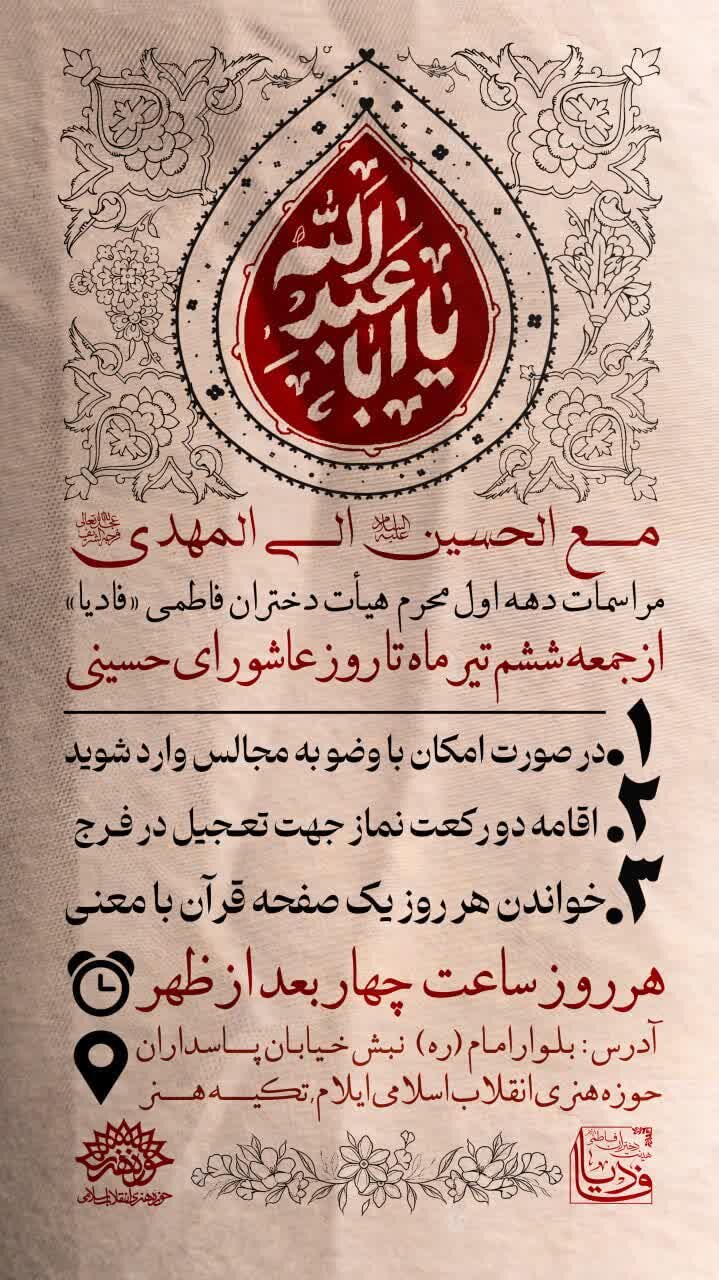 یا ابا عبدالله
مع الحسین علیه السلام الی المهدی عجل الله تعالی فرجه الشریف
مراسمات دهه اول محرم هیأت دختران فاطمی «فادیا»
از جمعه ششم تیر ماه تا روز عاشورای حسینی
۱. در صورت امکان با وضو به مجالس وارد شوید
۲. اقامه دو رکعت نماز جهت تعجیل در فرج
۳. خواندن هر روز یک صفحه قرآن با معنی
هر روز ساعت چهار بعد از ظهر
آدرس: بلوار امام (ره) نبش خیابان پاسداران
حوزه هنری انقلاب اسلامی ایلام، تکیه هنر
هیئت دختران فاطمی
فادیا
حوزه هنری
حوزه هنری انقلاب اسلامی